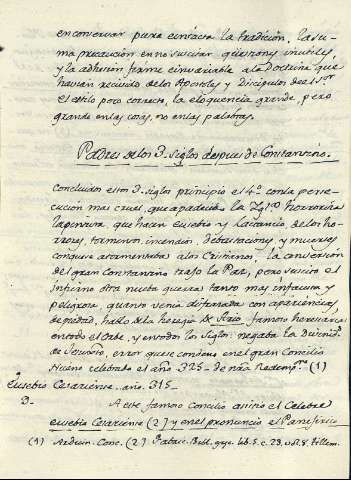 en conservar pura e intacta la tradicion, la su-
ma precaucion en no suscitar questiones inutiles,
y la adhesion firme e invariable a la Doctrina que
havian recivido de los Apostoles y Discipulos de el Sor
el estilo poco correcto, la eloquencia grande, pero
grande en las cosas, no en las palabras.
Padres de los 3. siglos despues de Constantino.
Concluidos estos 3. siglos principio el 4º con la perse-
cucion mas cruel, que apadecido la Iglª horroriza
la pintura, que hacen eusebio y Lactancio, de los ho-
rrores, tormentos, incendios, debastaciones, y muertes
con que atormentaba a los Cristianos; la conversion
del gran Constantino trajo la Paz, pero suscito el
infierno otra nueba guerra tanto mas infausta y
peligrosa quanto venia disfrazada con apariencias
de piedad, hablo de la heregia de Arrio famoso heresiarca
en todo el Orbe, y en todos los siglos: negaba la Divinid.
de Jesuxto, error que se condeno en el gran Concilio
Niceno celebrado el año 325 de nra Redempn (1)
Eusebio Cesariense. año. 315
3- A este famoso Concilio asistio el Celebre
eusebio Cesariense (2) y en el pronuncio el Panegirico
(1) Arduin. Conc. (2) Natalis. lib. 5. c. 23. n. 8. Tillem.